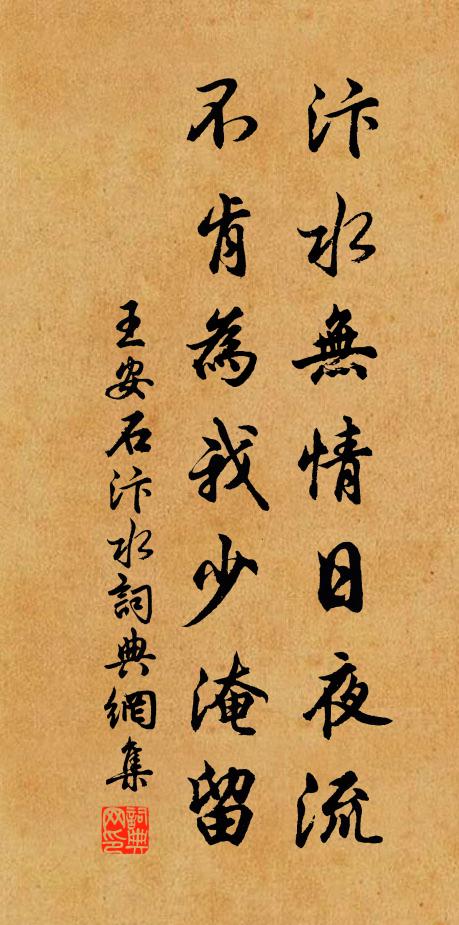 汴水無情日夜流
不肯為我少淹留
王安石汴水詞典網集
詞典網印